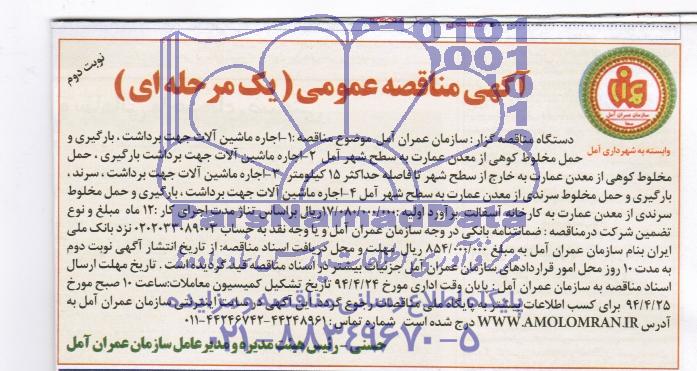 نوبت دوم
آگهی مناقصه عمومی ( یک مرحله ای )
سازمان عمران آمل
وابسته به شهرداری آمل
دستگاه مناقصه گزار : سازمان عمران آمل موضوع مناقصه : ۱-اجاره ماشین آلات جهت برداشت ، بارگیری و
حمل مخلوط کوهی از معدن عمارت به سطح شهر آمل ۲-اجاره ماشین آلات جهت برداشت بارگیری ، حمل
مخلوط کوهی از معدن عمارت به خارج از سطح شهر تا فاصله حداکثر ۱۵ کیلومتر ۳-اجاره ماشین آلات جهت برداشت ، سرند ،
بارگیری و حمل مخلوط سرندی از معدن عمارت به سطح شهر آمل ۴-اجاره ماشین آلات جهت برداشت ، بارگیری و حمل مخلوط
سرندی از معدن عمارت به کارخانه آسفالت برآورد اولیه : ۱۷/۰۸۰/۰۰۰/۰۰۰ریال براساس تناژ مدت اجرای کار : ۱۲ ماه مبلغ و نوع
تضمین شرکت درمناقصه : ضمانتنامه بانکی در وجه سازمان عمران آمل و یا وجه نقد به حساب نزد بانک ملی
ایران بنام سازمان عمران آمل به مبلغ ۸۵۴/۰۰۰/۰۰۰ ریال مهلت و محل دریافت اسناد مناقصه : از تاریخ انتشار آگهی نوبت دوم
به مدت ۱۰ روز محل امور قراردادهای سازمان عمران آمل جزئیات بیشتر در اسناد مناقصه قید گردیده است . تاریخ مهلت ارسال
اسناد مناقصه به سازمان عمران آمل : پایان وقت اداری مورخ ۹۴/۴/۲۴ تاریخ تشکیل کمیسیون معاملات:ساعت ۱۰ صبح مورخ
۹۴/۴/۲۵ برای کسب اطلاعات بیشتر به پایگاه ملی مناقصات رجوع گردد این آگهی در سایت اینترنتی سازمان عمران آمل به
آدرس WWW.AMOLOMRAN.IR درج شده است شماره تماس : ۴۴۲۴۸۹۶۱-۴۴۲۴۶۷۴۲-۰۱۱
حسنی - رئیس هیئت مدیره و مدیرعامل سازمان عمران آمل
پایگاه اطلاع رسانی مناقصه و مزایده
۰۲۱-۸۸۳۴۹۶۷۰-۵